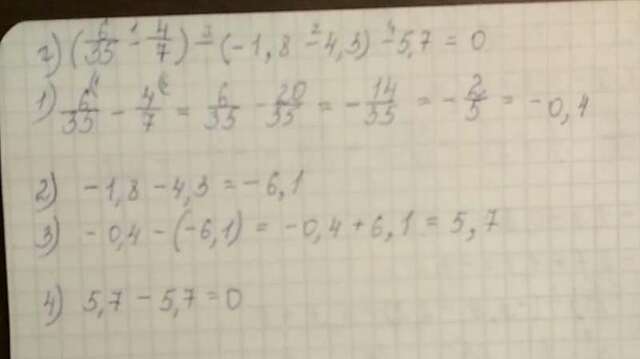 г) (6/35 - 4/7) - (-1,8 - 4,3) - 5,7 = 0
1) 6/35 - 4/7 = 6/35 - 20/35 = - 14/35 = - 2/5 = -0,4
2) -1,8 - 4,3 = -6,1
3) -0,4 - (-6,1) = -0,4 + 6,1 = 5,7
4) 5,7 - 5,7 = 0